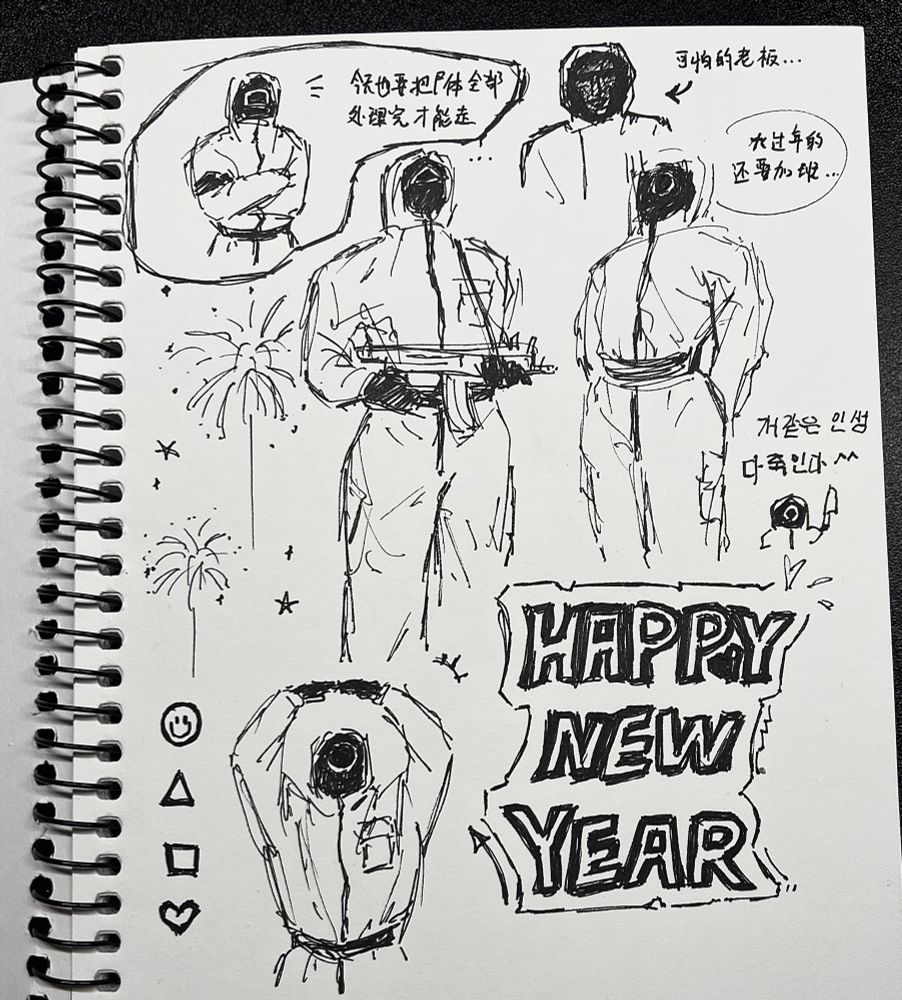 今天也要把尸体全部
处理完才能走
...
可怕的老板...
大过年的
还要加班...
개같은 인생
다 죽인다 ^^
HAPPY
NEW
YEAR